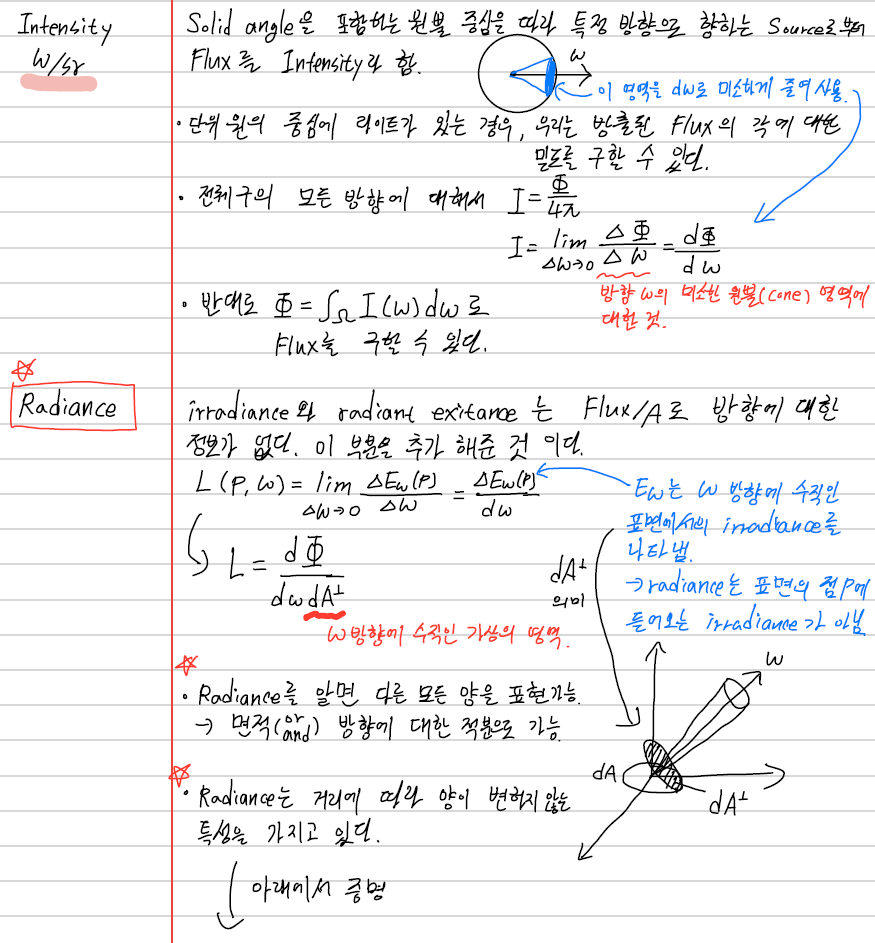 Intensity
W/sr
Solid angle을 포함하는 원뿔 중심을 따라 특정 방향으로 향하는 Source로부터
Flux를 Intensity라 함.
ω
이 영역을 dω로 미소하게 줄여 사용.
· 단위 원의 중심에 라이트가 있는 경우, 우리는 방출된 Flux의 각에 대한
밀도를 구할 수 있다.
· 전체 구의 모든 방향에 대해서 I = Φ/4π
I = lim Δω→0 ΔΦ/Δω = dΦ/dω
방향 ω의 미소한 원뿔(cone) 영역에
대한 것.
· 반대로 Φ = ∫Ω I(ω)dω로
Flux를 구할 수 있다.
☆
Radiance
irradiance와 radiant exitance는 Flux/A로 방향에 대한
정보가 없다. 이 부분을 추가 해준 것 이다.
L(P, ω) = lim Δω→0 ΔEω(P)/Δω = ΔEω(P)/dω
Eω는 ω 방향에 수직인
표면에서의 irradiance를
나타냄.
→radiance는 표면의 점 P에
들어오는 irradiance가 아님
L = dΦ/dωdA⊥
dA⊥
의미
ω방향에 수직인 가상의 영역.
☆
· Radiance를 알면 다른 모든 양을 표현가능.
→ 면적(or and) 방향에 대한 적분으로 가능.
ω
dA
dA⊥
☆
· Radiance는 거리에 따라 양이 변하지 않는
특성을 가지고 있다.
아래에서 증명